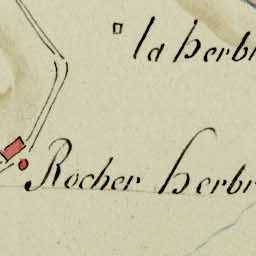 la herbr
Rocher herbr